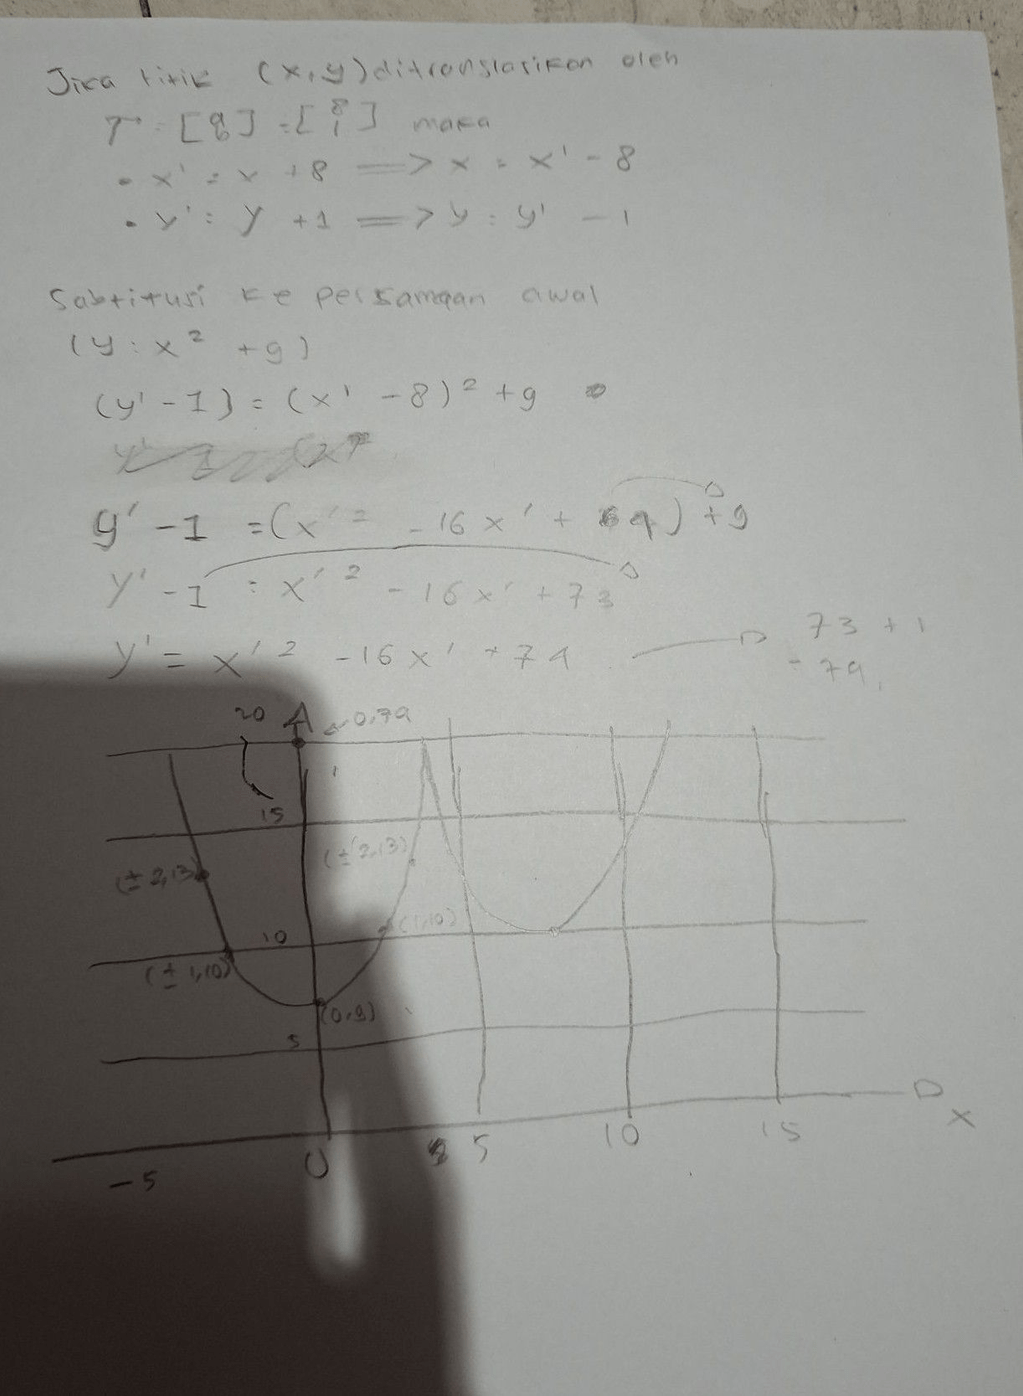 Jika titik (x,y) ditranslasikan oleh
T = [a b] = [8 1] maka
• x' = x + 8 => x = x' - 8
• y' = y + 1 => y = y' - 1
Sabtitusi ke persamaan awal
(y = x² + 9)
(y' - 1) = (x' - 8)² + 9
y' - 1 = (x'² - 16x' + 64) + 9
y' - 1 = x'² - 16x' + 73
y' = x'² - 16x' + 74
73 + 1
= 74
20
0,74
15
(± 2,13)
(± 2,13)
10
(1,10)
(± 1,10)
(0,9)
5
-5
0
5
10
15
x